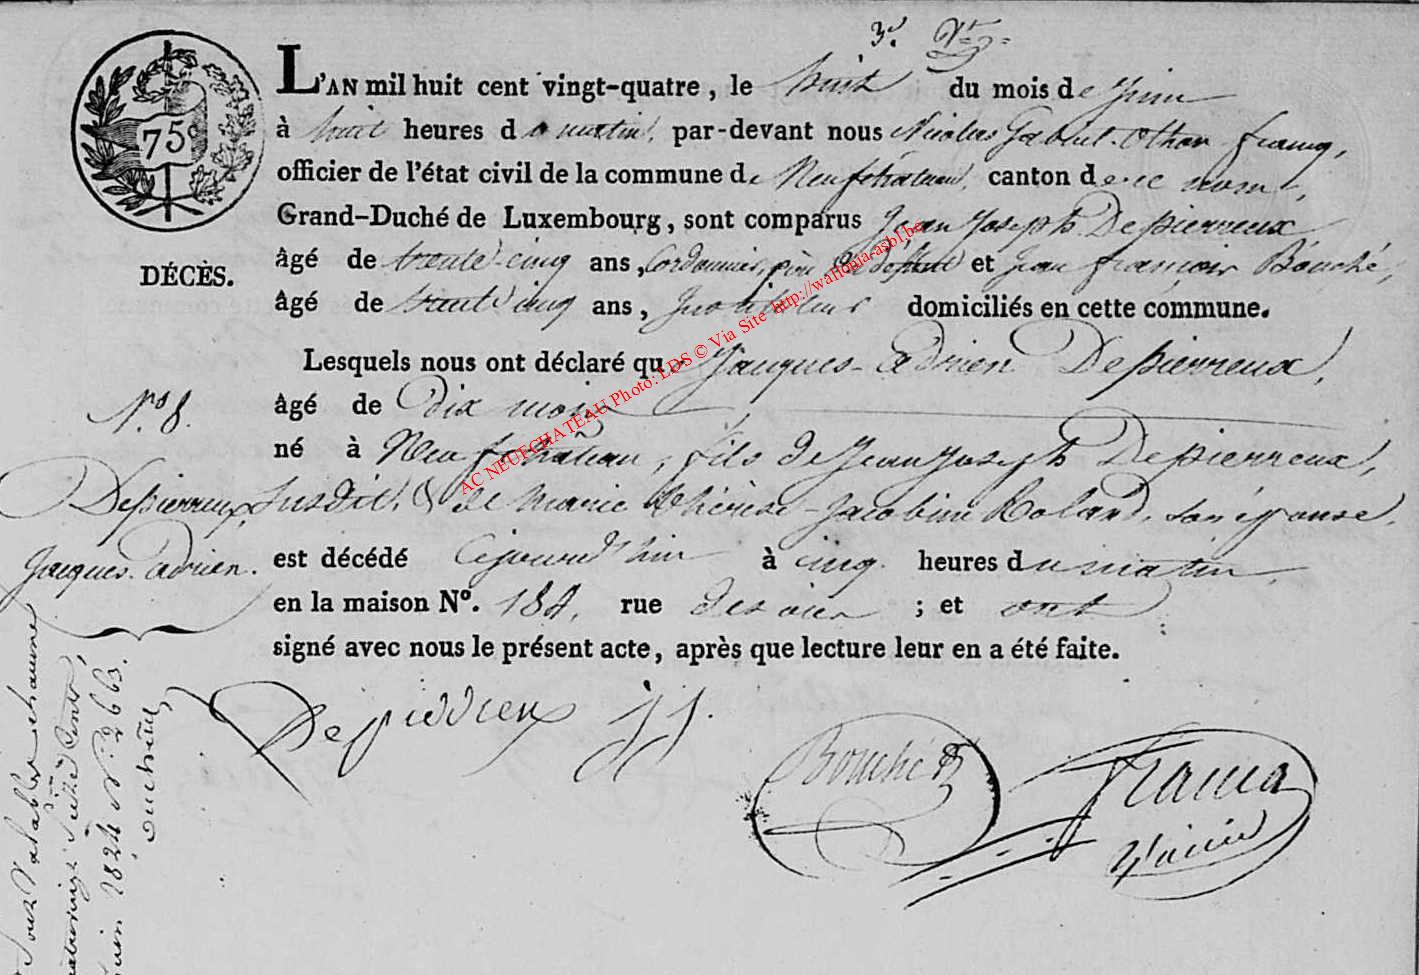 75c
L'AN mil huit cent vingt-quatre, le huit du mois de juin
à huit heures du matin, par-devant nous Nicolas Othon Francq,
officier de l'état civil de la commune de Neufchateau, canton de ce nom,
Grand-Duché de Luxembourg, sont comparus Jean Joseph Depierreux
âgé de trente-cinq ans, Cordonnier, père et Jean françois Bouché,
âgé de trente cinq ans, domiciliés en cette commune.
DÉCÈS.
Lesquels nous ont déclaré que Jacques-Adrien Depierreux,
âgé de Dix mois
né à Neufchateau, fils de Jean Joseph Depierreux,
susdit, & de Marie Thérèse-Jacobine Roland, son épouse,
est décédé Cejourd'hui à cinq heures du matin,
en la maison No. 184, rue ; et ont
signé avec nous le présent acte, après que lecture leur en a été faite.
No. 8.
Depierreux,
Jacques-Adrien.
juin 1824 No. 2663.
Depierreux JJ.
Bouché
Francq
AC NEUFCHATEAU Photo: LDS © Via Site http://wallonia-asbl.be